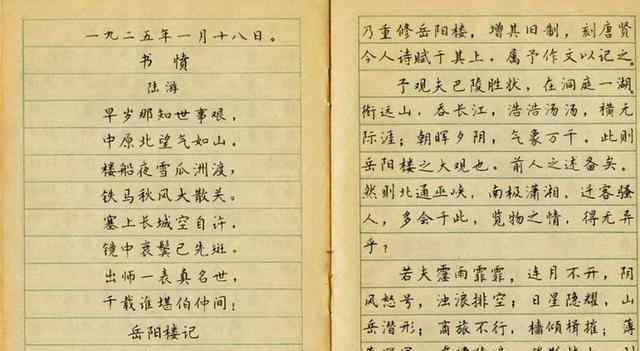 一九二五年一月十八日。
书愤
陆游
早岁那知世事艰，
中原北望气如山。
楼船夜雪瓜洲渡，
铁马秋风大散关。
塞上长城空自许，
镜中衰鬓已先斑。
出师一表真名世，
千载谁堪伯仲间！
岳阳楼记
乃重修岳阳楼，增其旧制，刻唐贤
今人诗赋于其上。属予作文以记之。
予观夫巴陵胜状，在洞庭一湖。
衔远山，吞长江，浩浩汤汤，横无
际涯；朝晖夕阴，气象万千。此则
岳阳楼之大观也。前人之述备矣。
然则北通巫峡，南极潇湘，迁客骚
人，多会于此，览物之情，得无异
乎？
若夫霪雨霏霏，连月不开，阴
风怒号，浊浪排空；日星隐耀，山
岳潜形；商旅不行，樯倾楫摧；薄